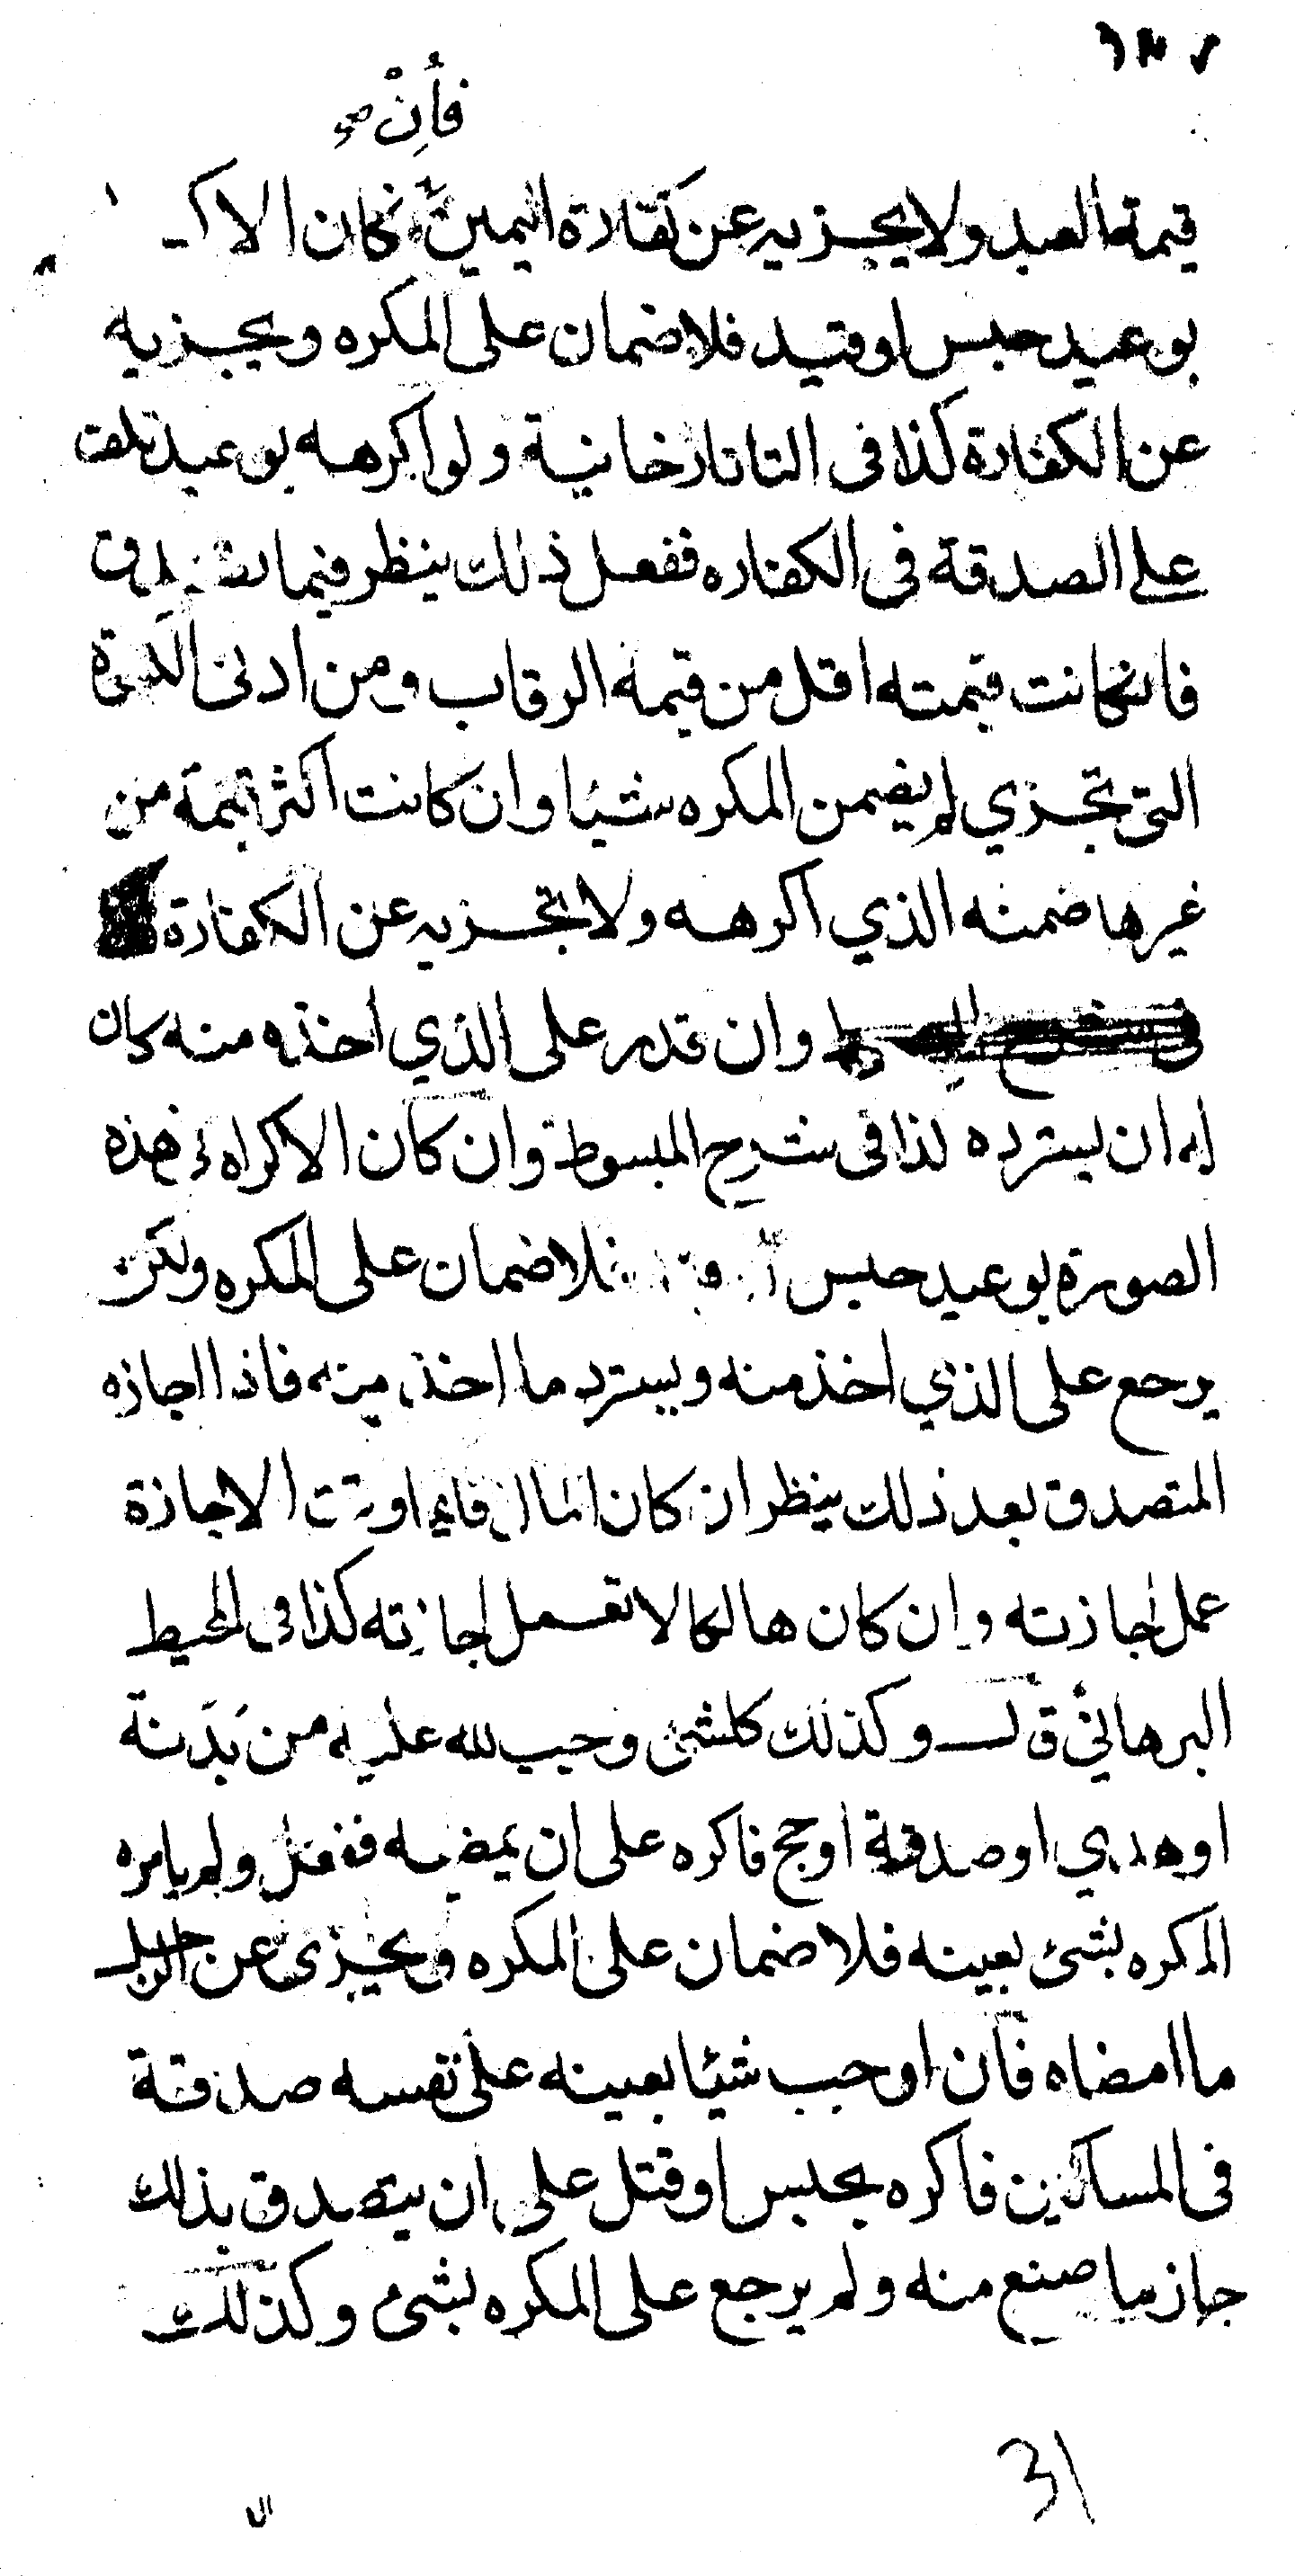 فأنْ صح
قيمة العبد ولا يجزيه عن كفارة اليمين كان الاكـ
بوعيد حبس او قيد فلا ضمان على المكره ويجزيه
عن الكفارة كذا في التاتارخانية ولو اكرهه بوعيد تلف
على الصدقة في الكفاره ففعل ذلك ينظر فيما
فانكانت قيمته اقل من قيمة الرقاب ومن ادنى الكسوة
التي تجزي لم يضمن المكره شيئا وان كانت اكثر قيمة من
غيرها ضمنه الذي اكرهه ولا تجزيه عن الكفارة
وان قدر على الذي اخذه منه كان
له ان يسترده كذا في شرح المبسوط وان كان الاكراه في هذه
الصورة بوعيد حبس فلا ضمان على المكره ولكن
يرجع على الذي اخذ منه ويسترد ما اخذ منه فاذا اجازه
المتصدق بعد ذلك ينظر ان كان المال قايما وقت الاجازة
عمل اجازته وان كان هالكا لا تعمل اجازته كذا في المحيط
البرهاني قال وكذلك كلشئ وجب لله عليه من بَدَنة
او هدي او صدقة او حج فاكره على ان يمضيه ففعل ولم يامره
المكره بشئ بعينه فلا ضمان على المكره ويجزى عن الرجل
ما امضاه فان اوجب شيئا بعينه على نفسه صدقة
في المساكين فاكره بحبس او قتل على ان يتصدق بذلك
جاز ما صنع منه ولم يرجع على المكره بشئ وكذلك
31